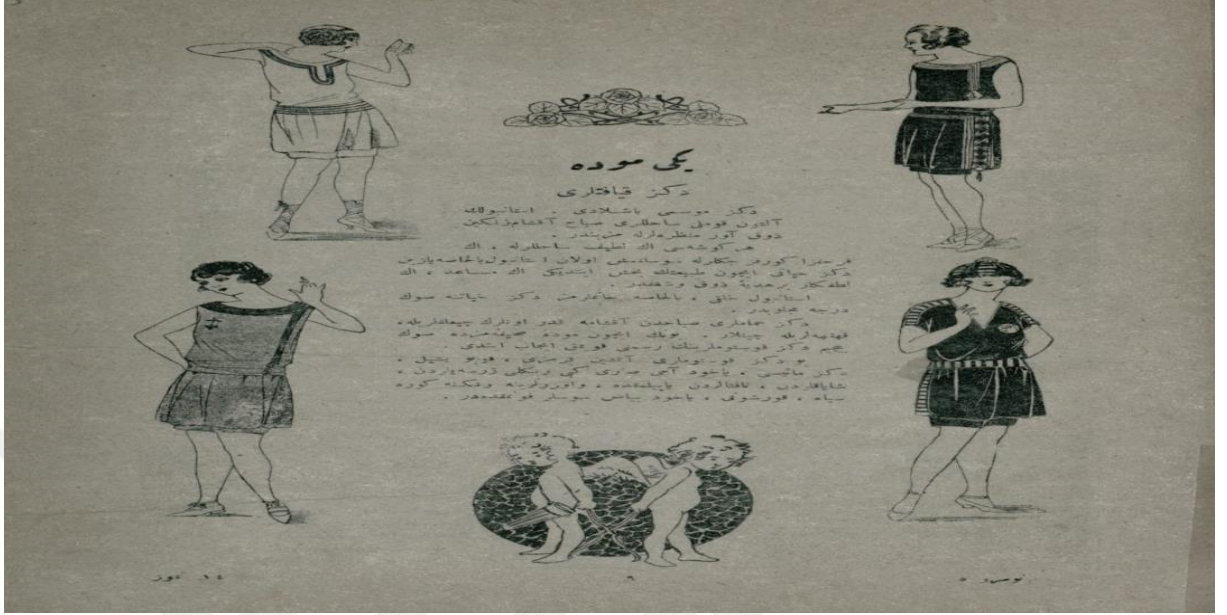 یکی موده
دکز قیافتلری
دکز موسمی باشلادی . استانبولك
آلتون قوملی ساحللری صباح آقشام رنکین
ذوق آور منظره‌لرله مزیندر .
هر کوشه‌سی اك لطیف ساحللرله ، اك
فرحفزا کورفز جکلرله سوسلنمش اولان استانبول بالخاصه یازین
دکز حیاتی ایچون طبیعتك بخش ایتدیکی اك مساعد ، اك
لطفکار بر هدیهٔ ذوق و
استانبول خلقی ، بالخاصه دکز حیاتنه صوك
درجه مجلوبدر .
دکز حماملری صباحدن آقشامه قدر اونلرك
قهقهه‌لریله چینلار . بونك ایچون موده صحیفه‌مزده صوك
دکز قوستوملرینك رسمنی قویمق ایجاب ایتدی .
بو دکز قوستوملری آتشین قرمزی ، قویو یشیل ،
دکز مائیسی ، یاخود آجی صاری کبی رنکلی
، تافتالردن یاپیلمقده ، و اوزرلرینه رنکنه کوره
سیاه ، قورشونی ، یاخود بیاض سوسلر قونمقده‌در .
١٤ تموز
٩
نومرو ٥